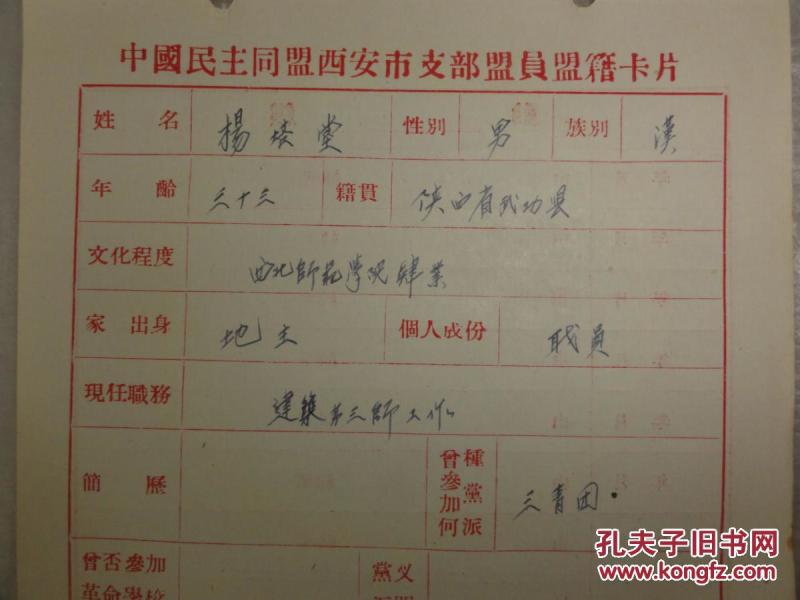 中國民主同盟西安市支部盟員盟籍卡片
姓名 楊 堂 性別 男 族別 漢
年齡 三十三 籍貫 陕西省武功县
文化程度 西北師范學院肄業
家出身 地主 個人成份 职員
現任職務 建築第三師工作
簡歷 曾參加何種黨派 三青团.
曾否參加 黨义
革命學校
孔夫子旧书网